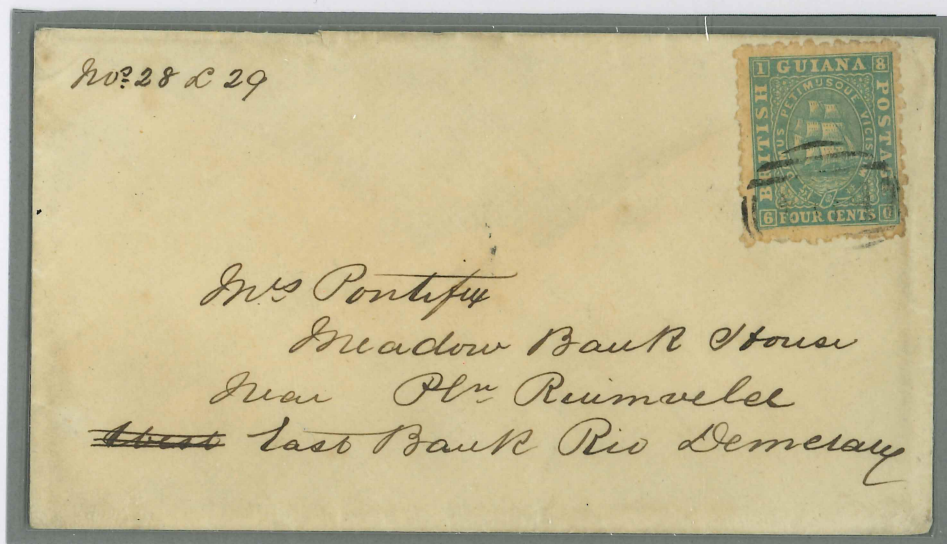 Nos. 28 & 29
1 GUIANA 8
BRITISH
POSTAGE
DAMUS PETIMUSQUE VICISSIM
6 FOUR CENTS 0
Mrs Pontifex
Meadow Bank House
Near Pln Ruimveld
West East Bank Rio Demerary